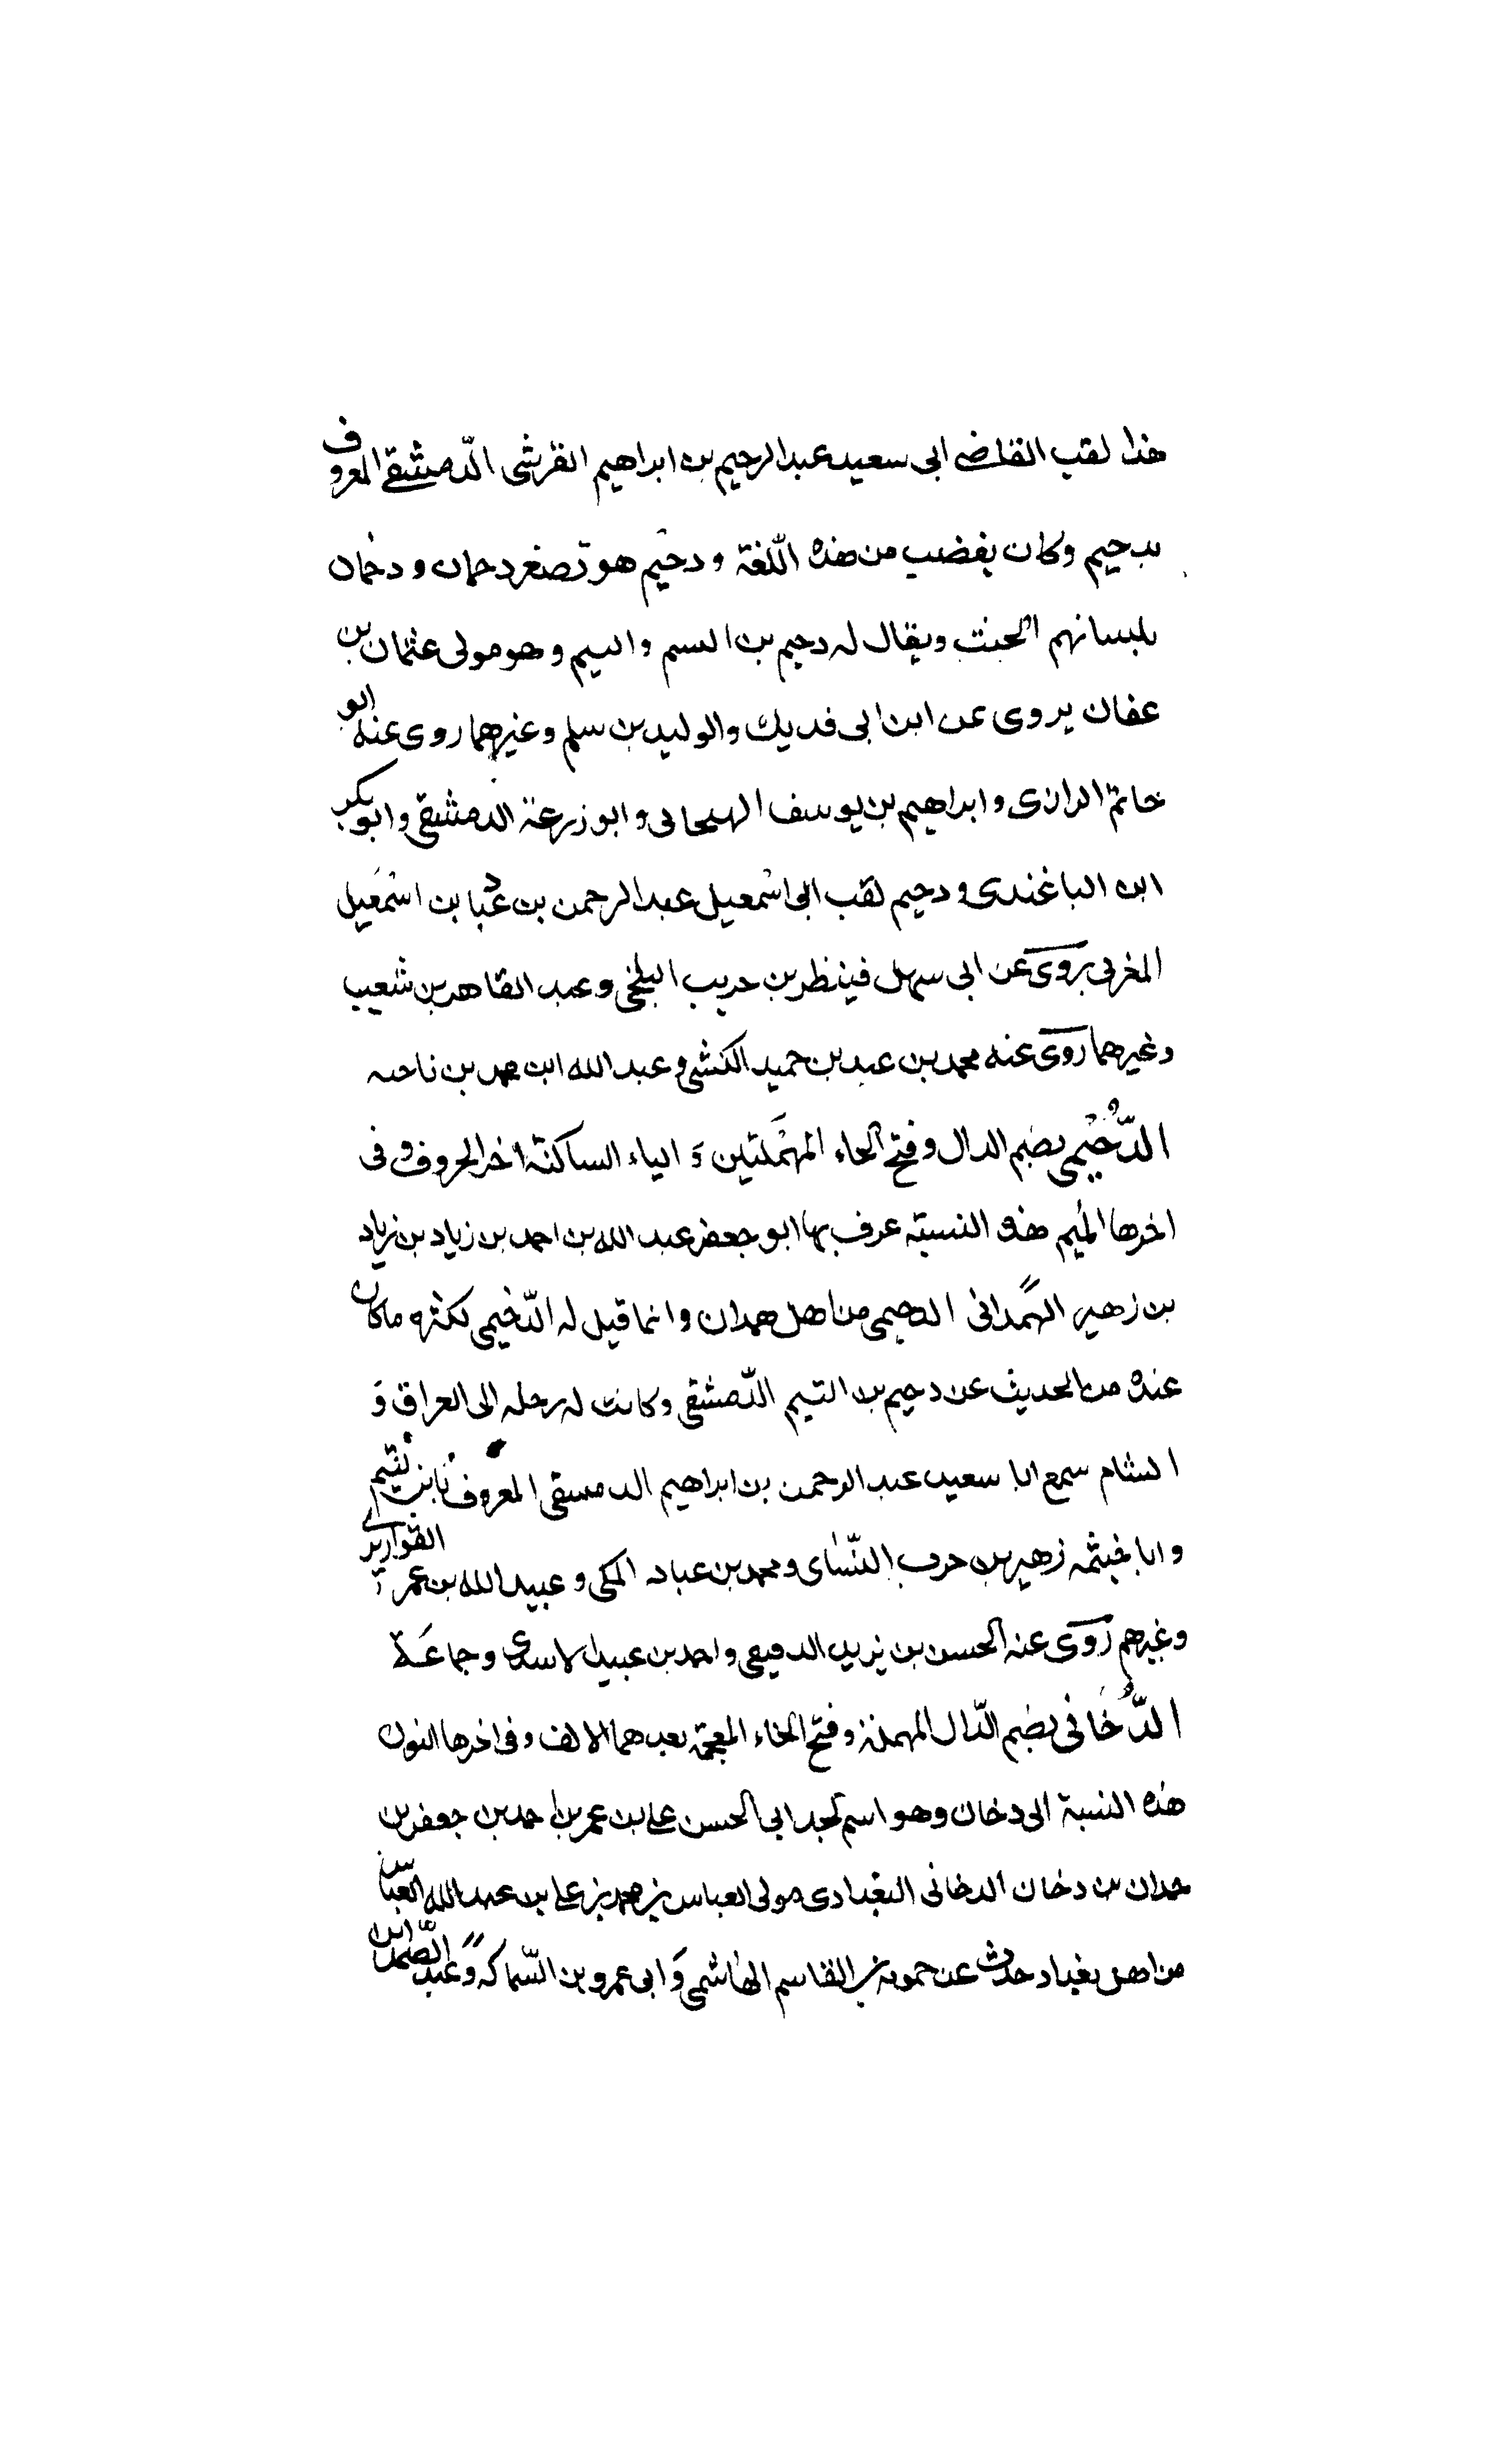 هذا لقب القاضي ابى سعيد عبد الرحيم بن ابراهيم القرشى الدّمشقى المعروف
بدحيم وكان يغضب من هذه اللّغة و دحيم هو تصغر دحمان و دحمان
بلسانهم الخبيث ويقال له دحيم بن اليسم واليسم وهو مولى عثمان بن
عفان يروى عن ابن ابى فديك والوليد بن سلم وغيرهما روى عنه ابو
حاتم الرازى و ابراهيم بن يوسف الهسجانى و ابو زرعة الدمشقى وابو بكر
ابن الباغندى و دحيم لقب ابى اسمعيل عبد الرحمن بن عباد بن اسمعيل
المغربى يروى عن ابى سهل بن حريب البلخى و عبد القاهر بن شعيب
وغيرهما روى عنه محمد بن عبد بن حميد الكشى و عبد الله ابن محمد بن ناجيه
الدُّحَيْمى بضم الدال وفتح الحاء المهملتين وَ الياء الساكنة اخر الحروف و فى
اخرها الميم هذه النسبة عرف بها ابو جعفر عبد الله بن احمد بن زياد بن زياد
بن زهير الهمدانى الدحيمى من اهل همدان وانما قيل له الدّحيمى لكثره ما كان
عنده من الحديث عن دحيم بن اليتيم الدّمشقى وكانت له رحله الى العراق وَ
الشام سمع ابا سعيد عبد الرحمن بن ابراهيم الدمسقى المعروف بابن يتيم
و ابا خيثمه زهير بن حرب النّسَاى ومحمد بن عباد المكى و عبيد الله بن عمر القواريرى
وغيرهم روى عنه الحسن بن يزيد الدقيقى واحمد بن عبيد الاسدى و جماعَة
الدُّخَانى بضم الدّال المهملة وفتح الخاء المعجمة بعدهما الالف وفى اخرها النون
هذه النسبة الى دخان وهو اسم لجد ابى الحسن على بن عمر بن احمد بن جعفر بن
حمدان بن دخان الدخانى البغدادى مولى العباس بن محمد بن على بن عبد الله العباس
من اهل بغداد حدث عن حمزة بن القاسم الهاشمى وَ ابى عمرو بن السّماك وَعبد الصّمد ابن